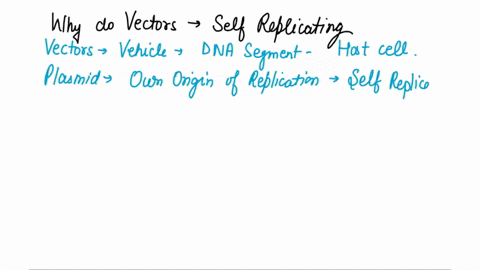 Why do Vectors → Self Replicating
Vectors → Vehicle → DNA Segment - Host cell.
Plasmid → Own Origin of Replication → Self Replica